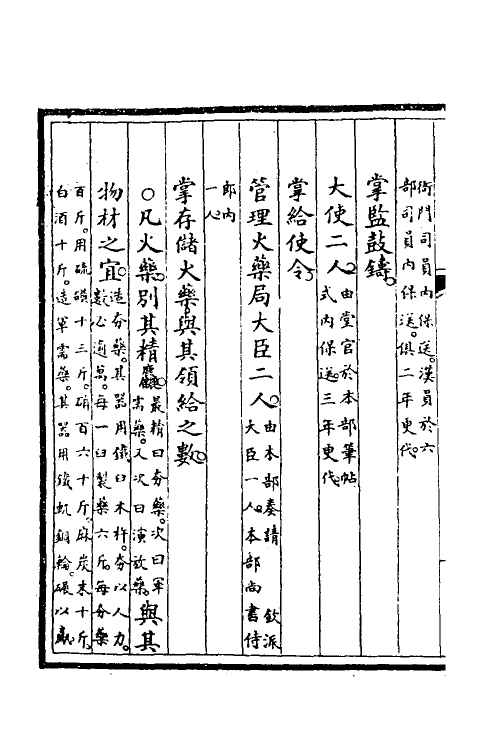 衙門司員內保送。漢員於六
部司員內保送。俱二年更代。
掌監鼓鑄。
大使二人。由堂官於本部筆帖
式內保送三年更代。
掌給使令。
管理火藥局大臣二人。由本部奏請 欽派
大臣一人。本部尚書侍
郎內
一人
掌存儲火藥與其領給之數。
○凡火藥別其精麤。最精曰夯藥。次曰軍
需藥。又次曰演放藥。與其
物材之宜。造夯藥。其器用鐵臼木杵。夯以人力。
數必逾萬。每一臼製藥六斤。每夯藥
百斤。用硫磺十三斤。硝百六十斤。麻炭末十斤。
白酒十斤。造軍需藥。其器用鐵軏銅輪。碾以